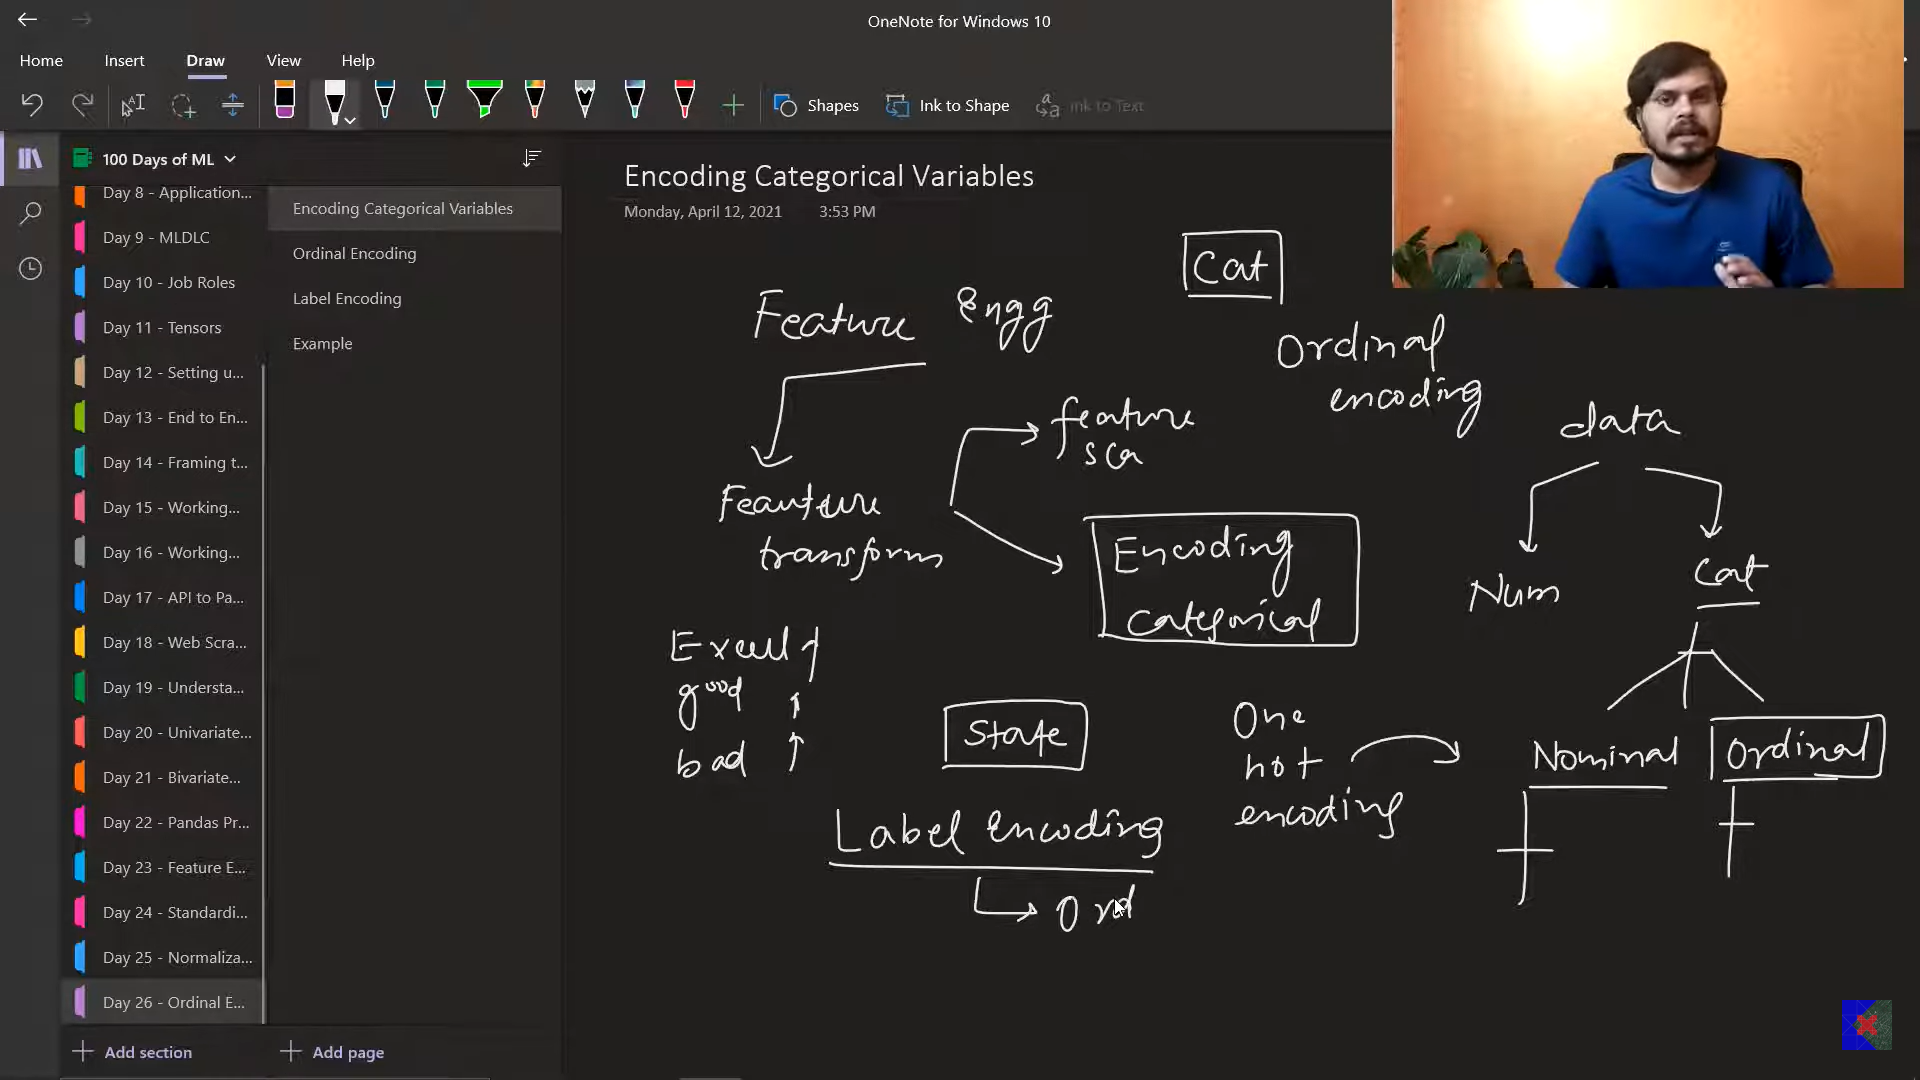 OneNote for Windows 10
Home Insert Draw View Help
Shapes Ink to Shape Ink to Text
100 Days of ML
Day 8 - Application...
Day 9 - MLDLC
Day 10 - Job Roles
Day 11 - Tensors
Day 12 - Setting u...
Day 13 - End to En...
Day 14 - Framing t...
Day 15 - Working...
Day 16 - Working...
Day 17 - API to Pa...
Day 18 - Web Scra...
Day 19 - Understa...
Day 20 - Univariate...
Day 21 - Bivariate...
Day 22 - Pandas Pr...
Day 23 - Feature E...
Day 24 - Standardi...
Day 25 - Normaliza...
Day 26 - Ordinal E...
Add section
Encoding Categorical Variables
Ordinal Encoding
Label Encoding
Example
Add page
Encoding Categorical Variables
Monday, April 12, 2021 3:53 PM
Cat
Feature Engg
Ordinal
encoding
feature
sca
data
Feauture
transform
Encoding
Categorical
Num
Cat
Excell
good
bad
State
One
hot
encoding
Nominal
Ordinal
Label encoding
Ord